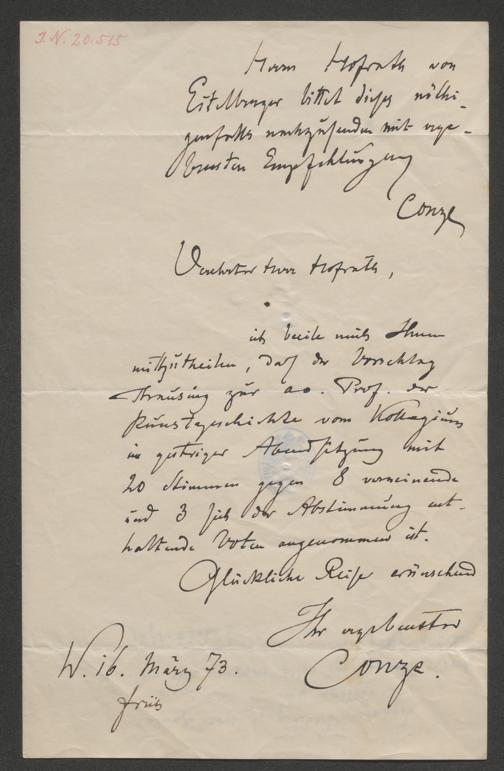 J.N. 20.515
Herrn Hofrath von
Eitelberger bittet dieses nöthi-
genfalls nachzusenden mit erge-
bensten Empfehlungen
Conze
Verehrter Herr Hofrath,
ich beeile mich Ihnen
mitzutheilen, daß der Vorschlag
Thausing zur ao. Prof. der
Kunstgeschichte vom Kollegium
in gestriger Abendsitzung mit
20 Stimmen gegen 8 verneinende
und 3 sich der Abstimmung ent-
haltende Voten angenommen ist.
Glückliche Reise erwünschend
Ihr ergebenster
Conze.
W. 16. März 73.
früh